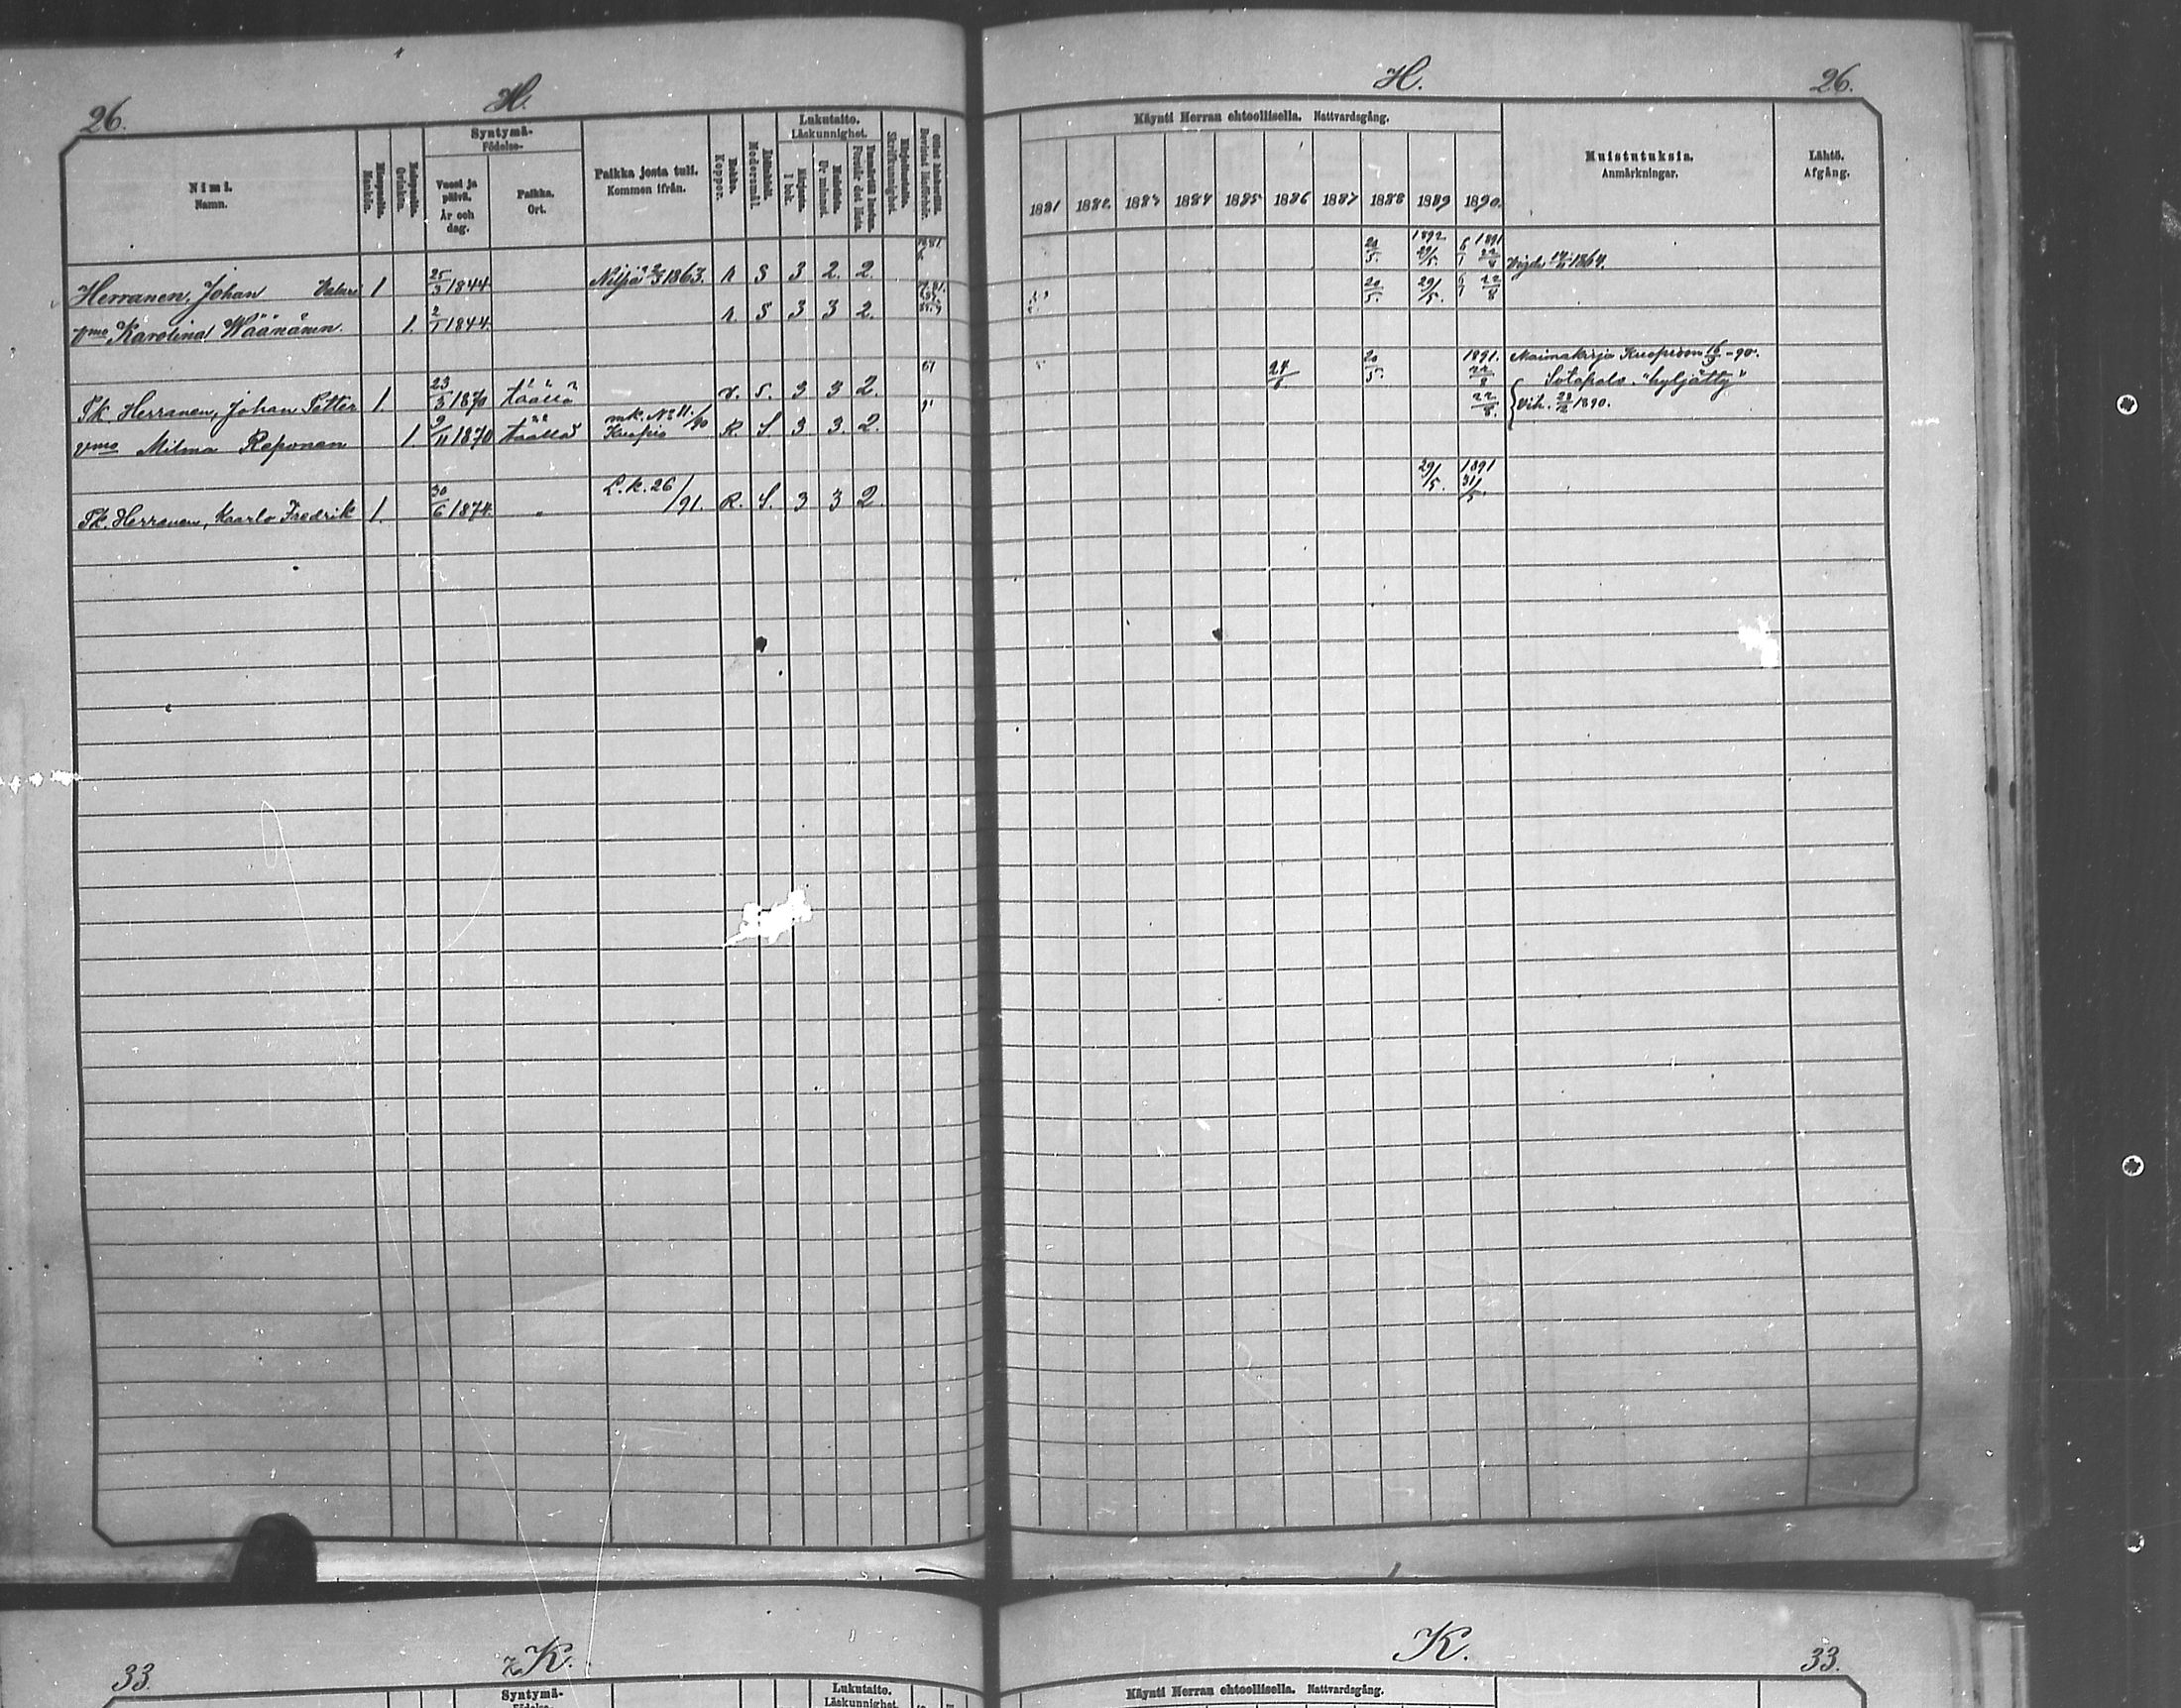 26. H.
Nimi. Namn.
Miespuolia. Mankön.
Naispuolia. Qvinkön.
Syntymä- Födelse-
Vuosi ja päivä. År och dag.
Paikka. Ort.
Paikka josta tuli. Kommen ifrån.
Rokko. Koppor.
Modersmål.
Lukutaito. Läskunnighet.
I bok.
Ur minnet.
Skrifkunnighet.
Herranen, Johan 1 25/3 1844 1863. r S 3 2. 2.
vmo Karolina Wäänänen. 1. 2/1 1844. r. S 3 3 2.
Tk. Herranen, Johan Petter 1. 23/3 1870 täällä r. S. 3 3 2.
vmo Milma Reponen 1. 9/11 1870 täällä mk. No 11./90 Kuopio R. S 3 3. 2.
Tk. Herranen, Kaarlo Fredrik 1. 30/6 1874. " L.k. 26/91. R. S. 3 3 2.
H. 26.
Käynti Herran ehtoollisella. Nattvardsgång.
1881 1882. 1883 1884 1885 1886 1887 1888 1889 1890.
Muistutuksia. Anmärkningar.
Lähtö. Afgång.
20/5. 1892 29/5. 6/1 1891 1864.
20/5. 29/5. 6/1 22/8
24/6 20/5. 1891. 22/8 Mainakirja Kuopioon 16/9 -90.
Sotapalv. "hyljätty"
22/8. Vih. 1890.
29/5. 1891 31/5.
33. K.
Syntymä-
Lukutaito.
Läskunnighet.
K. 33.
Käynti Herran ehtoollisella. Nattvardsgång.